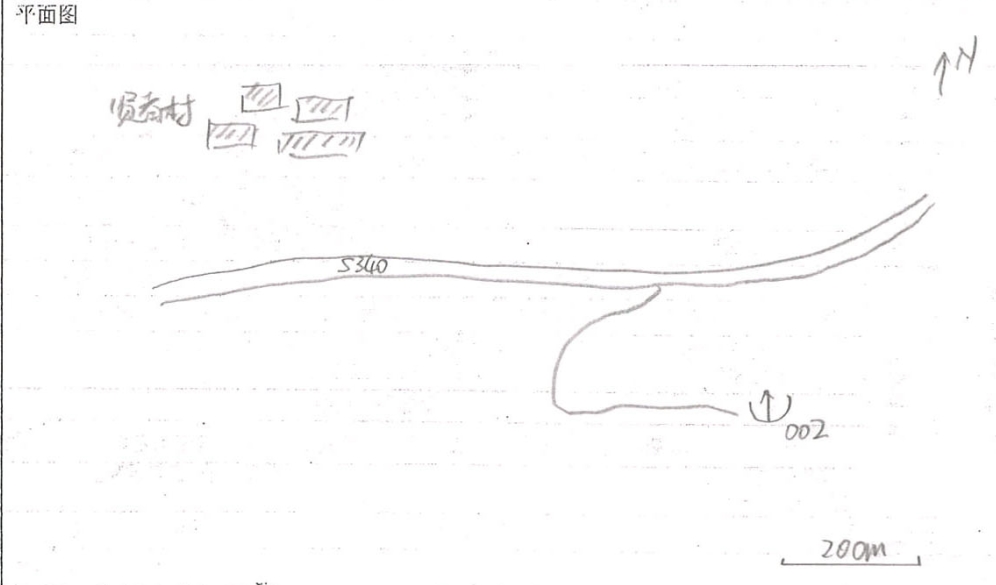 平面图
N
贤者村
S340
002
200m